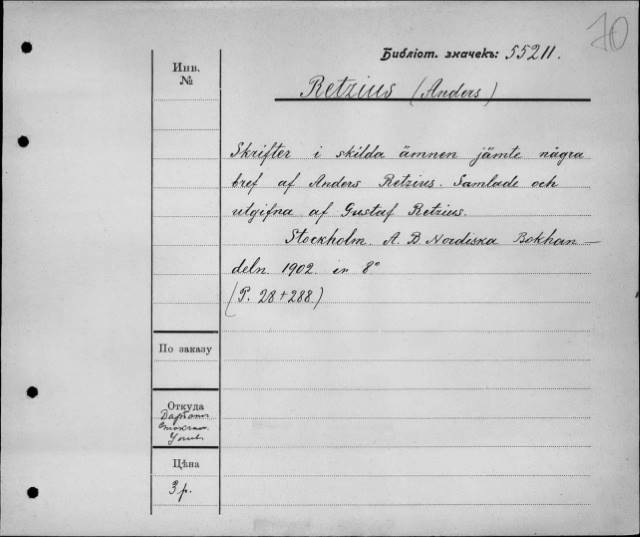 70
Библіот. значекъ: 55211.
Инв.
№
Retzius (Anders)
Skrifter i skilda ämnen jämte några
bref af Anders Retzius. Samlade och
utgifna af Gustaf Retzius.
Stockholm. A. B. Nordiska Bokhan–
deln. 1902. in 8°
(P. 28+288.)
По заказу
Откуда
Цѣна
3 р.